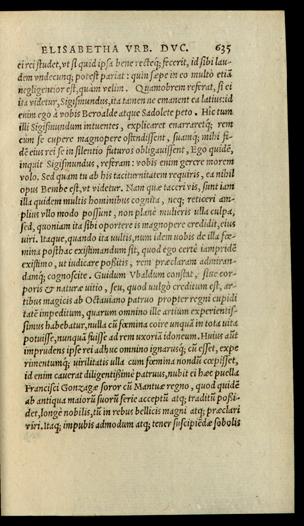 ELISABETHA VRB. DVC. 635
ei rei studet, vt si quid ipsa bene recteq; fecerit, id sibi lau-
dem vndecunq; potest pariat: quin sæpe in eo multò etiã
negligentior est, quàm velim. Quamobrem referat, si ei
ita videtur, Sigismundus, ita tamen ne emanent ea latius: id
enim ego à vobis Beroalde atque Sadolete peto. Hic tum
illi Sigismundum intuentes, explicaret enarraretq; rem
cum se cupere magnopere ostendissent, suamq; mihi fi-
dẽ eius rei se in silentio futuros obligauissent, Ego quidẽ,
inquit Sigismundus, referam: vobis enim gerere morem
volo. Sed quam tu ab his taciturnitatem requiris, ea nihil
opus Bembe est, vt videtur. Nam quæ taceri vis, sunt iam
illa quidem multis hominibus cognita, neq; reticeri am-
plius vllo modo possunt, non planè mulieris vlla culpa,
sed, quoniam ita sibi oportere is magnopere credidit, eius
viri. Itaque, quando ita vultis, num idem uobis de illa fœ-
mina posthac existimandum sit, quod ego certè iampridẽ
existimo, ut iudicare possitis, rem præclaram admiran-
damq; cognoscite. Guidum Vbaldum constat, siue cor-
poris & naturæ uitio, seu, quod uulgò creditum est, ar-
tibus magicis ab Octauiano patruo propter regni cupidi
tatẽ impeditum, quarum omnino ille artium experientis-
simus habebatur, nulla cũ fœmina coire unquã in tota uita
potuisse, nunquã fuisse ad rem uxoriã idoneum. Huius aũt
imprudens ipse rei adhuc omnino ignarusq; cũ esset, expe
rimentumq; uirilitatis ulla cum fœmina nondũ cœpisset,
id enim cauerat diligentissimè patruus, nubit ei hæc puella
Francisci Gonzagæ soror cũ Mantuæ regno, quod quidẽ
ab antiqua maiorũ suorũ serie acceptũ atq; traditũ possi-
det, longè nobilis, tũ in rebus bellicis magni atq; præclari
viri. Itaq; impubis admodum atq; tener suscipiẽdæ sobolis